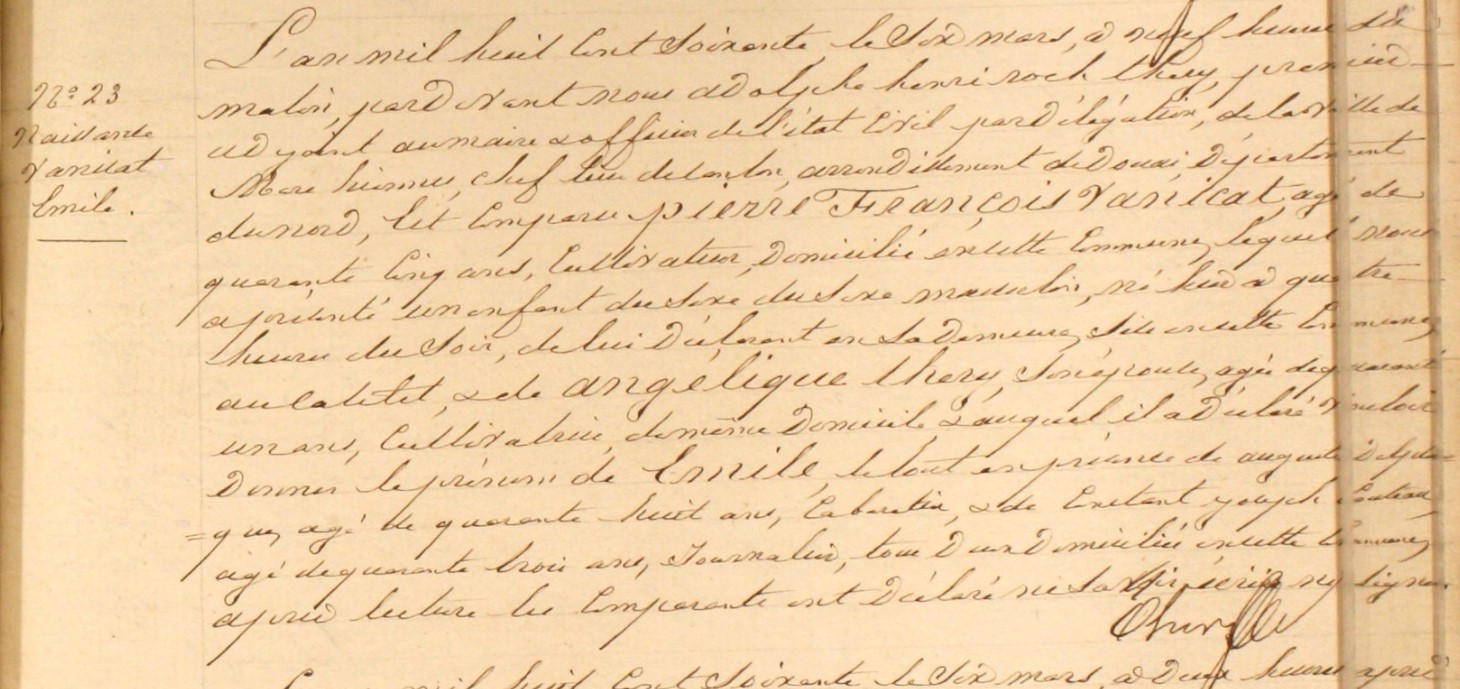 N° 23
Naissance
Vanicat
Emile.
L'an mil huit cent soixante, le six mars, à neuf heures du
matin, pardevant nous adolphe henri roch thery, premier
adjoint au maire & officier de l'état civil par délégation, de la ville de
Marchiennes, chef lieu de canton, arrondissement de Douai, Département
du nord, est comparu pierre François Vanicat, agé de
quarante cinq ans, Cultivateur, Domicilié en cette Commune, lequel nous
a présenté un enfant du sexe du sexe masculin, né hier à quatre
heures du soir, de lui Déclarant en sa Demeure, sise en cette Commune,
au & de angélique thery, son épouse, agée de quarante
un ans, Cultivatrice, de même Domicile & auquel il a déclaré vouloir
Donner le prénom de Emile, le tout en présence de auguste
agé de quarante huit ans, Cabaretier, & de Constant joseph
agé de quarante trois ans, Journalier, tous Deux Domiciliés en cette Commune,
après lecture les Comparants ont Déclaré ne savoir écrire ny signer.
L'an mil huit Cent Soixante le Six mars, à Deux heures après